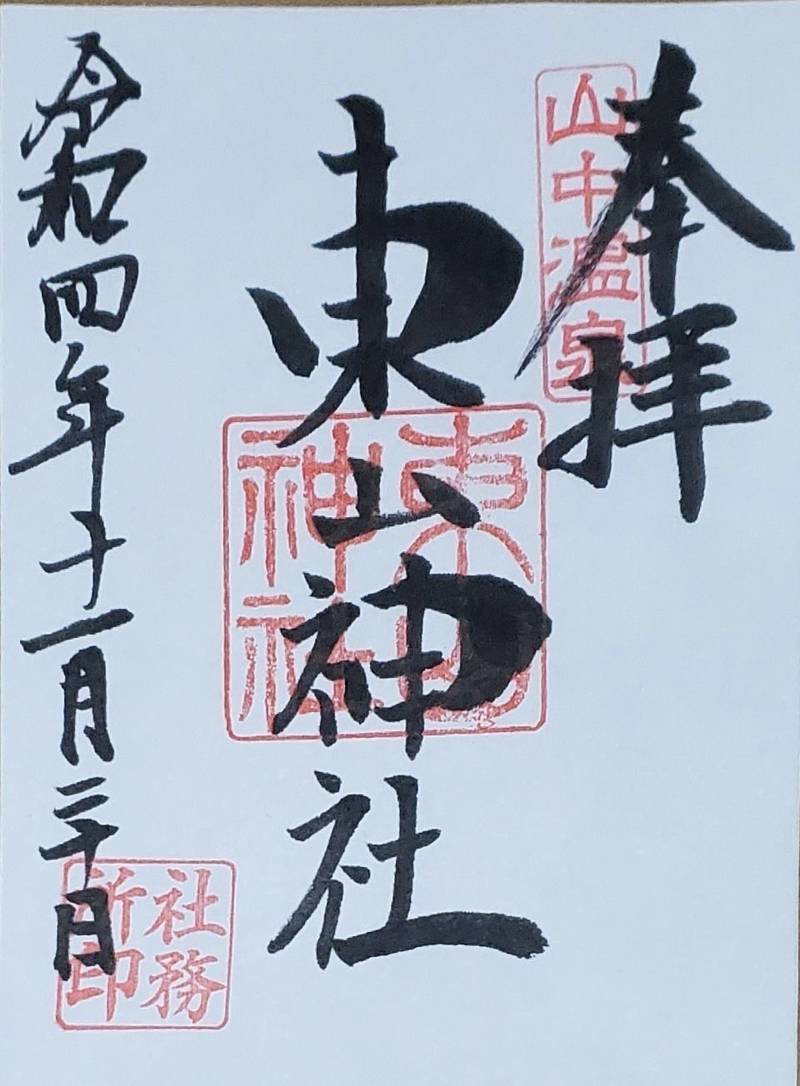 奉拝
山中温泉
東山神社
東山神社
令和四年十一月二十日
社務所印